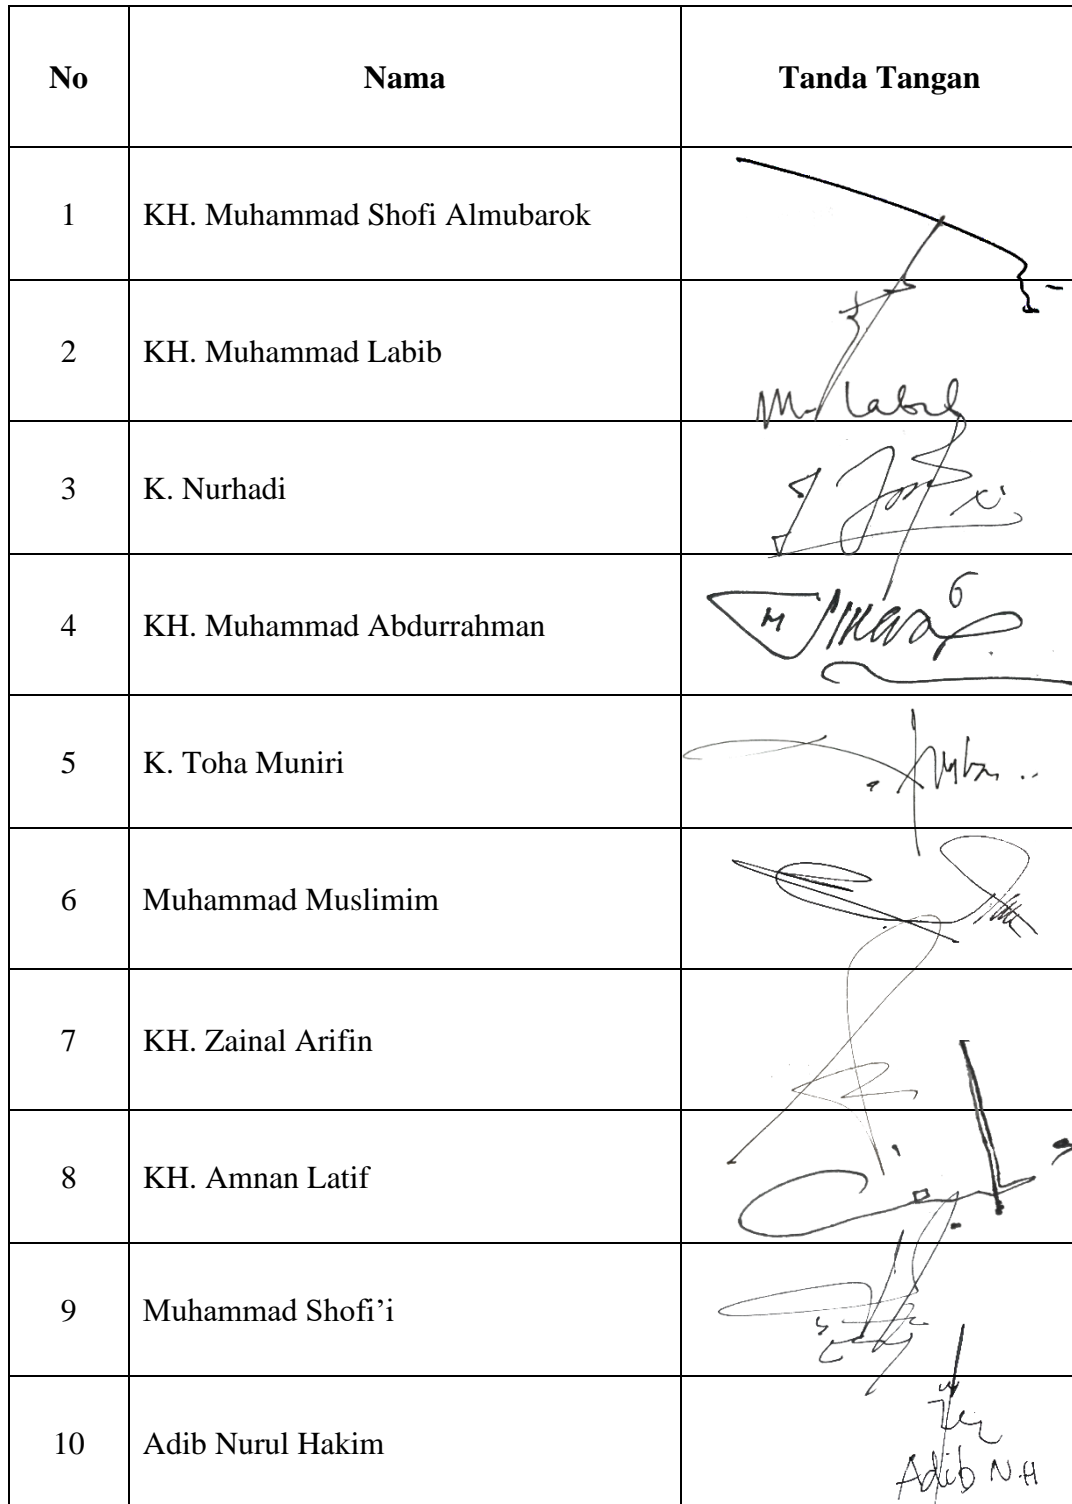 No Nama Tanda Tangan
1 KH. Muhammad Shofi Almubarok
2 KH. Muhammad Labib M. Labib
3 K. Nurhadi
4 KH. Muhammad Abdurrahman
5 K. Toha Muniri
6 Muhammad Muslimim
7 KH. Zainal Arifin
8 KH. Amnan Latif
9 Muhammad Shofi’i
10 Adib Nurul Hakim Adib N.H